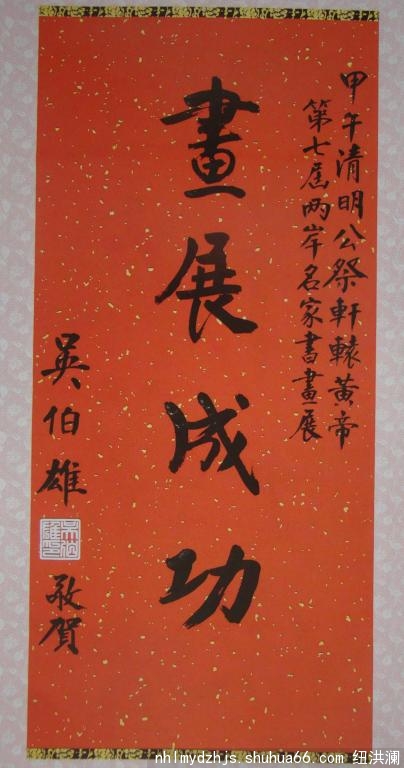 甲午清明公祭軒轅黃帝
第七屆兩岸名家書畫展
畫展成功
吳伯雄
敬賀
nhlmydzhjs.shuhua66.com 纽洪澜